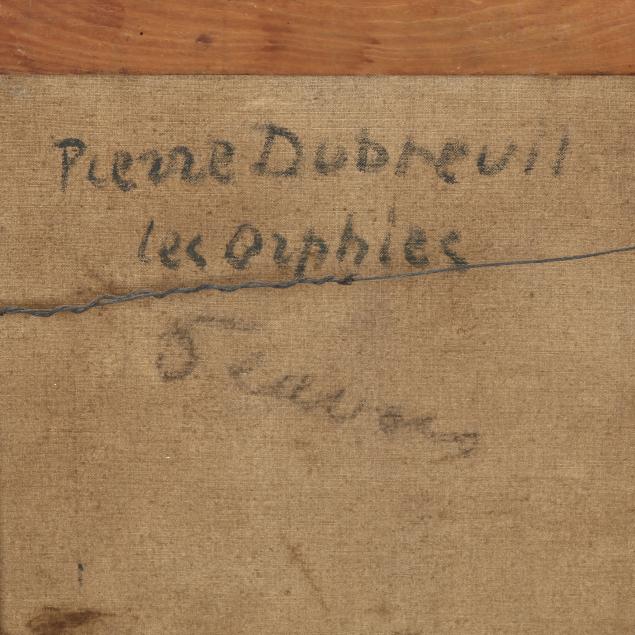 Pierre Dubreuil
les orphies
5